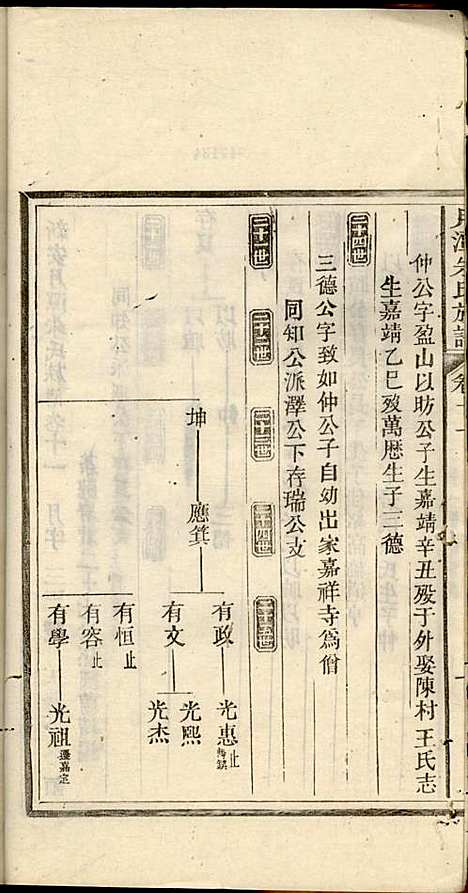 月潭朱氏族譜 卷十一
仲公字盈山以昉公子生嘉靖辛丑歿于外娶陳村王氏志
生嘉靖乙巳歿萬歷生子三德
二十四世
三德公字致如仲公子自幼出家嘉祥寺為僧
同知公派澤公下存瑞公支
二十一世 二十二世 二十三世 二十四世 二十五世
坤 應箕 有政 光惠止
有文 光熙
光杰
有恒止
有容止
有學 光祖遷嘉定